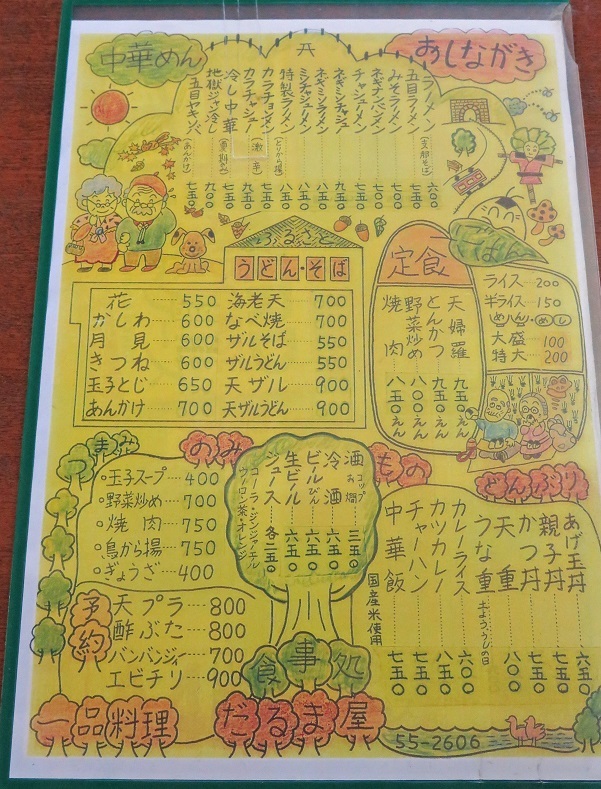 おしながき
中華めん
ラーメン（支那そば） 六〇〇
五目ラーメン 七五〇
みそラーメン
ネギナンバンメン
チャーシューメン
ネギミンチャシュー
ネギミンラーメン
ミンチャシューメン
特製ラーメン 八五〇
カラチョンメン（とりから揚）
カラチャシュー（激辛） 九五〇
冷し中華（夏期のみ） 七五〇
地獄ジャン冷し 九〇〇
五目ヤキソバ（あんかけ） 七五〇
ふるさと
うどん・そば
花 550
かしわ 600
月見 600
きつね 600
玉子とじ 650
あんかけ 700
海老天 700
なべ焼 700
ザルそば 550
ザルうどん 550
天ザル 900
天ザルうどん 900
定食
天婦羅 九五〇えん
とんかつ 九五〇えん
野菜炒め 八〇〇えん
焼肉 八五〇えん
ごはん
ライス 200
半ライス 150
めん・めし
大盛 100
特大 200
つまみ
玉子スープ 400
野菜炒め 700
焼肉 750
鳥から揚 750
ぎょうざ 400
のみもの
酒 コップ お燗 三五〇
冷酒 六五〇
ビール びん 六五〇
生ビール 六五〇
ジュース 各二五〇
コーラ・ジンジャエール
ウーロン茶・オレンジ
どんぶり
あげ玉丼 六五〇
親子丼 七五〇
かつ丼 七五〇
天重 八〇〇
うな重
カレーライス 六〇〇
カツカレー 八五〇
チャーハン 七五〇
中華飯 七五〇
国産米使用
予約
天プラ 800
酢ぶた 800
バンバンジィー 700
エビチリ 900
一品料理
食事処
だるま屋
55-2606